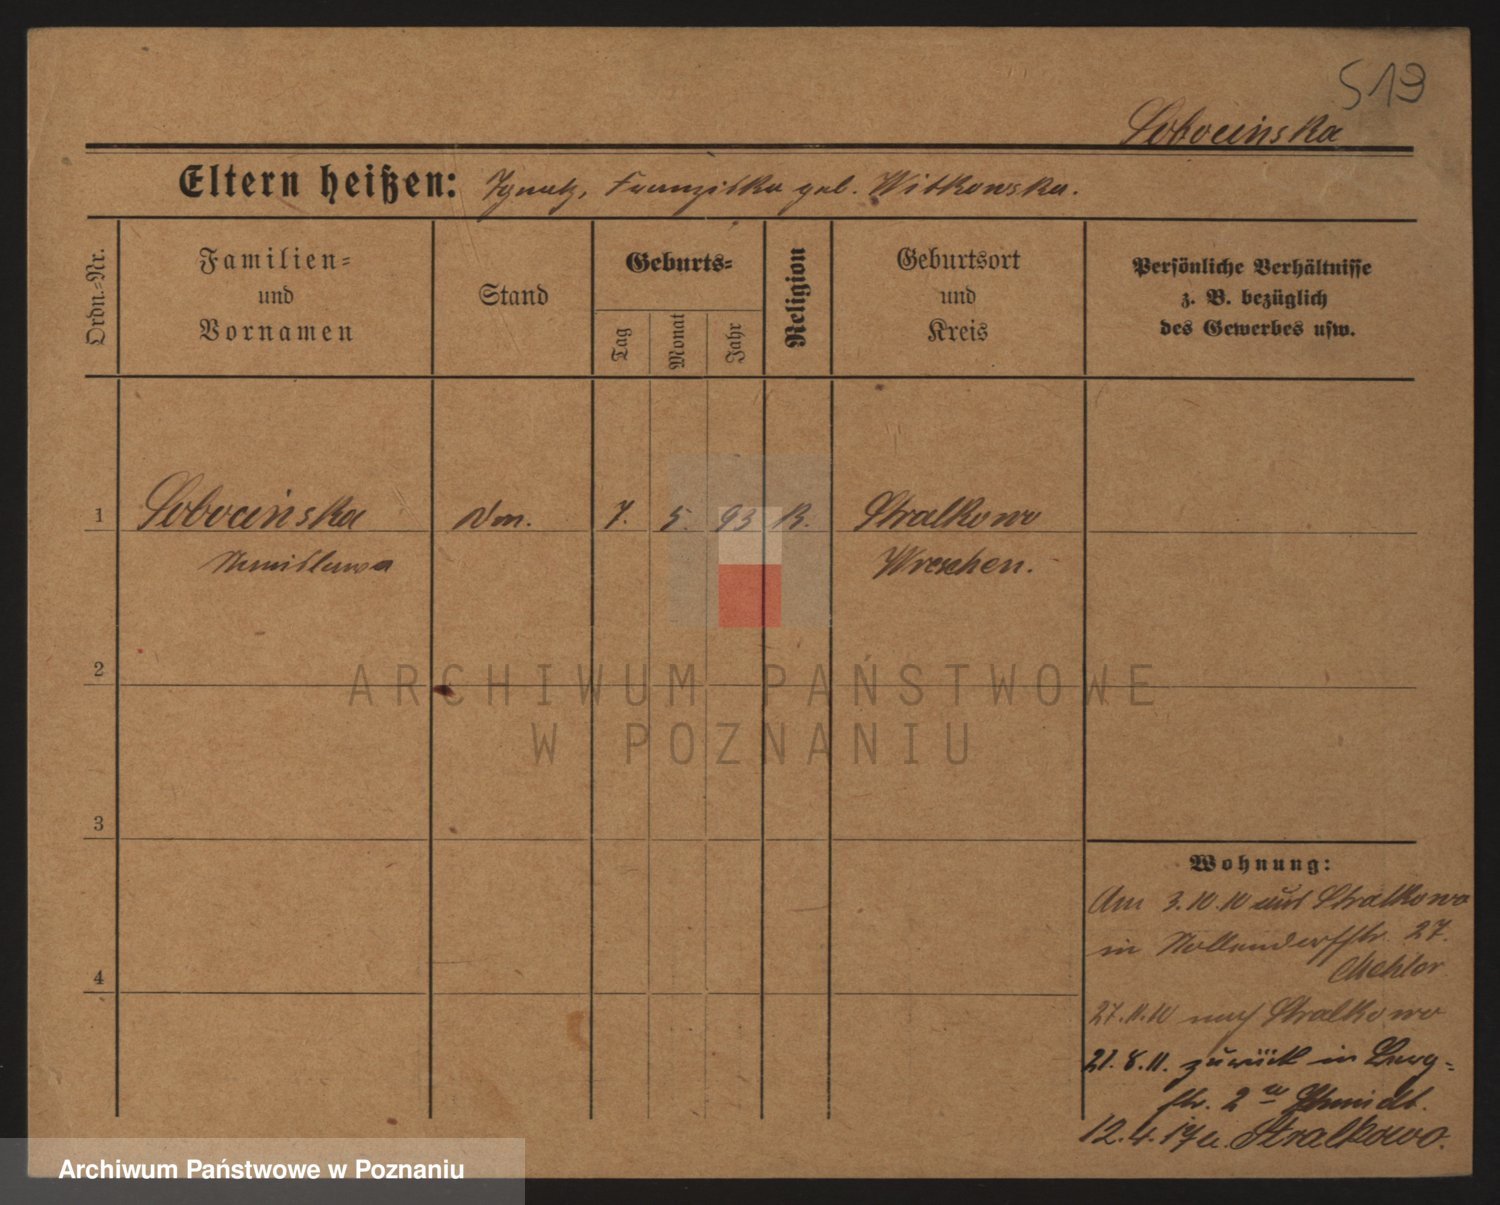 513
Sobocinska
Eltern heißen: Ignatz, Franziska geb. Witkowska.
Ordn.-Nr.
Familien-
und
Vornamen
Stand
Geburts-
Tag
Monat
Jahr
Religion
Geburtsort
und
Kreis
Persönliche Verhältnisse
z. B. bezüglich
des Gewerbes usw.
1 Sobocinska 7. 5. 93 K. Stralkowo
Wreschen.
2
ARCHIWUM PAŃSTWOWE
W POZNANIU
3
4
Wohnung:
Am 3.10.10 aus Stralkowo
in Nollendorfstr. 27.
27.11.10 nach Stralkowo
21.8.11. zurück in Berg-
str. 2 Schmidt.
12.4. Stralkowo.
Archiwum Państwowe w Poznaniu